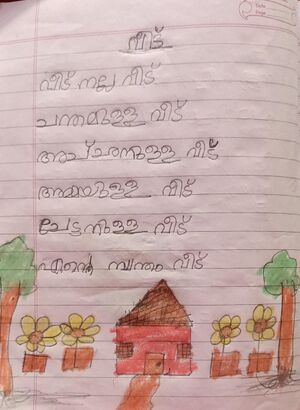 വീട്
വീട് നല്ല വീട്
ചന്തമുള്ള വീട്
അച്ഛനുള്ള വീട്
അമ്മയുള്ള വീട്
ചേട്ടനുള്ള വീട്
എന്റെ സ്വന്തം വീട്